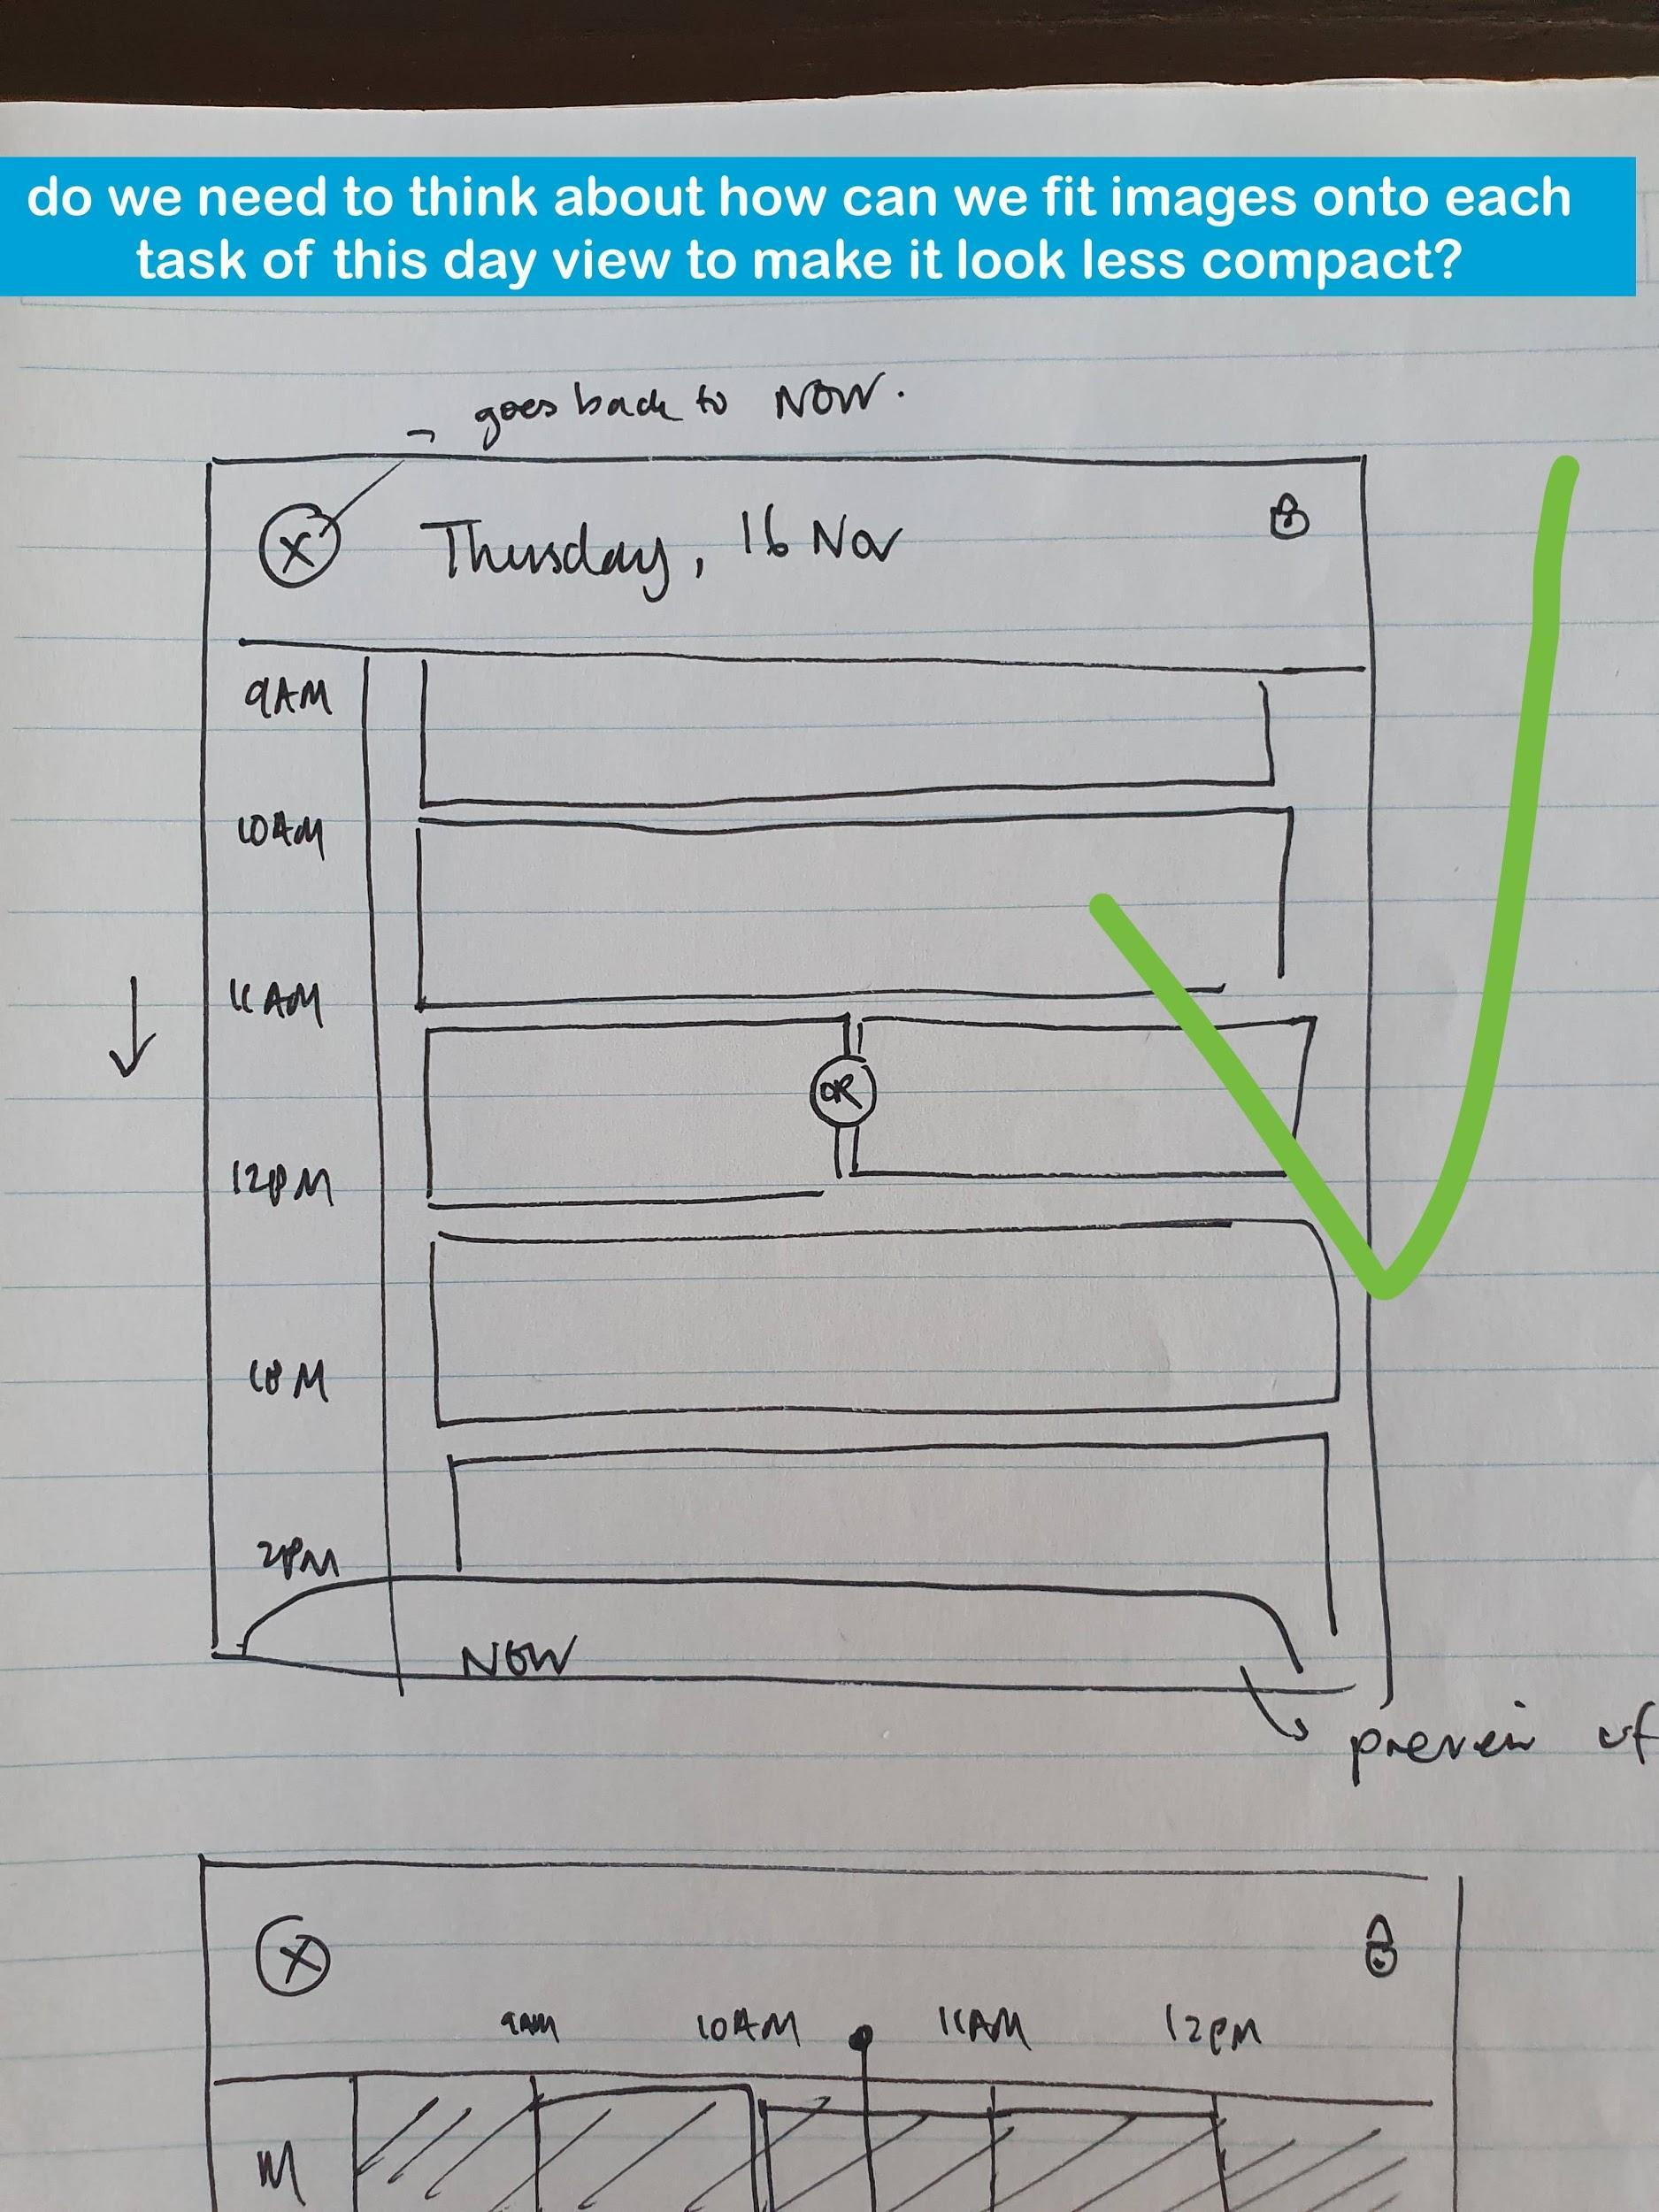 do we need to think about how can we fit images onto each
task of this day view to make it look less compact?
goes back to NOW.
X Thursday, 16 Nov
9AM
10AM
11AM
OR
12PM
1PM
2PM
NOW
preview of
X
9AM 10AM 11AM 12PM
M